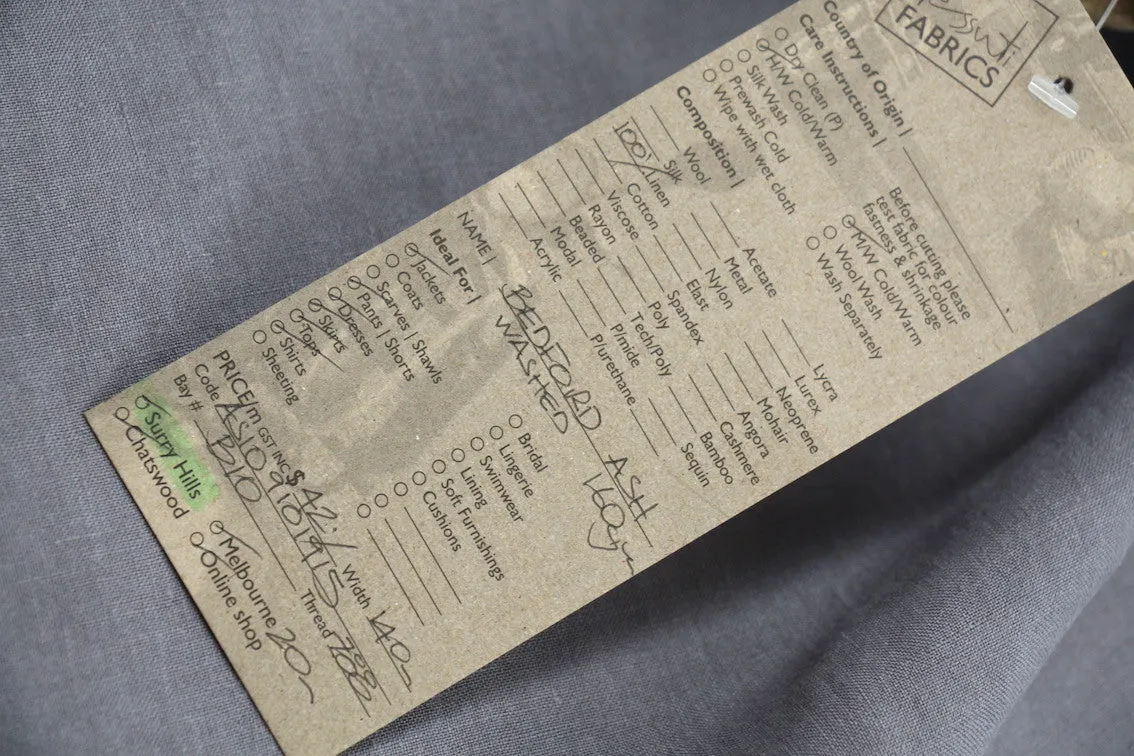 FABRICS
Country of Origin |
Care Instructions |
Dry Clean (P)
H/W Cold/Warm
Silk Wash
Prewash Cold
Wipe with wet cloth
Before cutting please
test fabric for colour
fastness & shrinkage
M/W Cold/Warm
Wool Wash
Wash Separately
Composition |
Wool
Silk
100% Linen
Cotton
Viscose
Rayon
Beaded
Modal
Acrylic
Acetate
Metal
Nylon
Elast
Spandex
Poly
Tech/Poly
P/mide
P/urethane
Lycra
Lurex
Neoprene
Mohair
Angora
Cashmere
Bamboo
Sequin
NAME | BEDFORD ASH
WASHED 160gm
Ideal For |
Jackets
Coats
Scarves / Shawls
Pants / Shorts
Dresses
Skirts
Tops
Shirts
Sheeting
Bridal
Lingerie
Swimwear
Lining
Soft Furnishings
Cushions
PRICE/m GST INC $ Width 140
Code Thread
Bay # B10
Surry Hills
Chatswood
Melbourne 20
Online shop